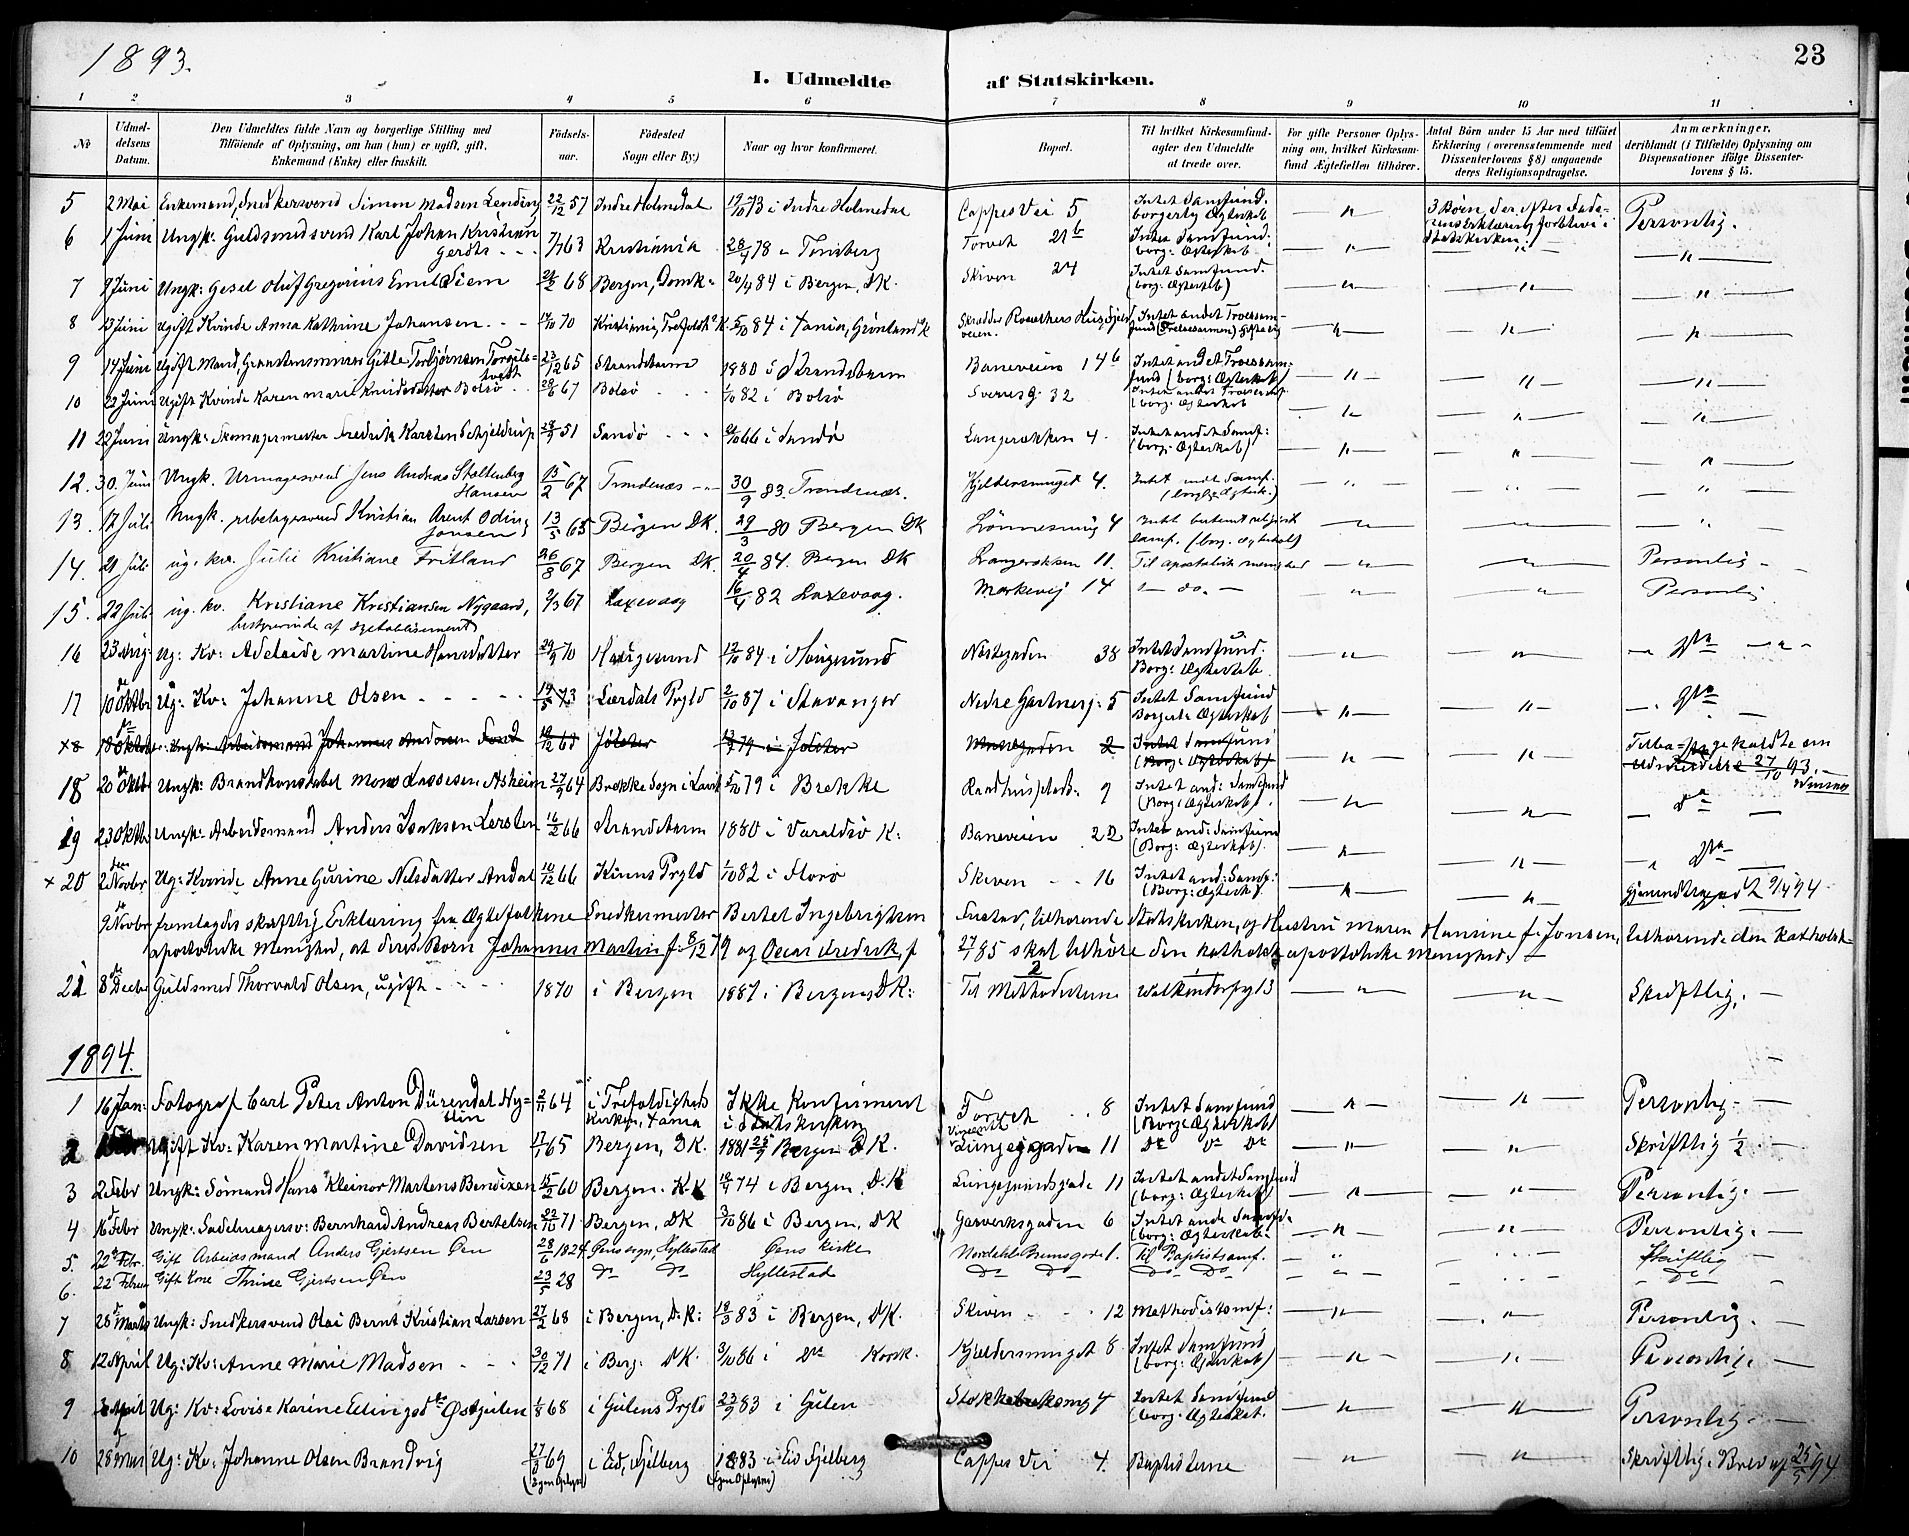 1893.
23
I. Udmeldte af Statskirken.
1 2 3 4 5 6 7 8 9 10 11
No
Udmel-
delsens
Datum.
Den Udmeldtes fulde Navn og borgerlige Stilling med
Tilføiende af Oplysning, om han (hun) er ugift, gift,
Enkemand (Enke) eller fraskilt.
Fødsels-
aar.
Fødested
Sogn eller By.)
Naar og hvor konfirmeret.
Bopæl.
Til hvilket Kirkesamfund-
agter den Udmeldte
at træde over.
For gifte Personer Oplys-
ning om, hvilket Kirkesam-
fund Ægtefællen tilhører.
Antal Børn under 15 Aar med tilføiet
Erklæring (overensstemmende med
Dissenterlovens § 8) angaaende
deres Religionsopdragelse.
Anmærkninger,
deriblandt (i Tilfælde) Oplysning om
Dispensationer ifølge Dissenter-
lovens § 15.
5 2 Mai Enkemand, Snedkersvend Simon Madsen Lending 22/12 57 Indre Holmedal 19/10 73 i Indre Holmedal Cappes Vei 5 Intet Samfund. borgerlig Ægteskab — " — 3 Børn, der efter Fade- rens Erklæring forblive i Statskirken Personlig.
6 1 Juni Ungk: Guldsmedsvend Karl Johan Kristian 7/7 63 Kristiania 28/4 78 i Tønsberg Torvet 21 b Intet Samfund. borg: Ægteskab — " — " — " —
Gerdts - - -
7 9 Juni Ungk: Gesel Oluf Gregorius Emil Siem 68 Bergen, Domk: 20/4 84 i Bergen, DK. Skiven 24 Intet Samfund. (borg: Ægteskab) — " — " — " —
8 13 Juni Ugift Kvinde Anna Kathrine Johansen - - - 70 Kristiania, 5/10 84 i Grønland K Intet andet Troessam- fund (Frelsesarmeen) — " — " — " —
veien.
9 14 Juni Ugift Mand, Gitle Torbjørnsen Torgils- 23/12 65 Strandebarm 1880 i Strandebarm Baneveien 14 b Intet andet Troessam- fund (borg: Ægteskab) — " — " — " —
tvedt
10 22 Juni Ugift Kvinde Karen Marie Knudsdatter Bolsø 28/6 67 Bolsø - - - 1/10 82 i Bolsø Sverresg. 32 Intet andet (borg: Ægteskab — " — " — " —
11 22 Juni Ungk: Skomagermester Fredrik Karsten Schjelderup 51 Sandø - - - 66 i Sandø Langerækken 4. Intet andet Samf: (borg: Ægteskab) — " — " — " —
12. 30. Juni Ungk. Urmagersvend Jens Andreas Stoltenberg 15/2 67 Trondenæs - - 30/9 83. Trondenæs. Kjeldersmuget 4. Intet andt Samf. — " — " — " —
Hansen
13. 17 Juli Ungk. rebslagersvend Kristian Arent Oding 13/5 65 Bergen DK. 29/3 80 Bergen DK 4 Intet bestemt religiøst samf. (borg. Ægteskab) — " — " — " —
Jonsen
14. 21 Juli ug. kv. Julie Kristiane Fritland 26/8 67 Bergen DK. 20/4 84. Bergen DK Langerækken 11. Til apostolisk menighed — " — " — Personlig -
15. 22 Juli ug. kv. Kristiane Kristiansen Nygaard, 2/3 67 Laxevaag 16/4 82 Laxevaag. Markevej 14 " — do. — — " — " — Personlig
bestyrerinde af
16 23 Aug: Ug: Kv: Adelaide Martine Hansdatter 29/9 70 Haugesund 12/10 84 i Haugesund Nestegaden 38 Intet Samfund. Borg: Ægteskab. — " — " — Do — " —
17 10de Oktbr Ug: Kv: Johanne Olsen - - - - 19/5 73 Lærdals Prgld 2/10 87 i Stavanger Nedre Gartnerg: 5 Intet Samfund Borgerl: Ægteskab — " — " — Do —
18 de Oktbr Ungk: Arbeidsmand Johannes Andersen Jølster i Jølster 2 Intet Samfund (Borg: Ægteskab) — " — " — Tilbagekaldte sin Udmeldelse 27/10 93.
18 20 de Oktbr Ungk: Brandkonstabel Mons Lassesen Asheim 27/9 64 Brekke Sogn i Lavik 5/10 79 i Brekke Raadhuspladsen 9 Intet and: Samfund (Borg: Ægteskab). — " — " — Do —
19 23 Oktbr Ungk: Arbeidsmand Anders Isaksen Lersten 16/2 66 Strandebarm 1880 i Varaldsø K: Baneveien 22 Intet and: Samfund (Borg: Ægteskab). — " — " — Do —
× 20 2den Novbr Ug: Kvinde Anne Gurine Nilsdatter Andal 10/12 66 Kinns Prgld 1/10 82 i Florø Skiven - - 16 Intet and: Samf: (Borg: Ægtesk). — " — " — Gjenindtraadt 94
9de Novbr fremlagdes skriftlig Erklæring fra Ægtefolkene Snedkermester Bertel Ingebrigtsen Fustad, tilhørende Statskirken, og Hustru Maren Hansine f. Jonsen, tilhørende den katholsk-
apostoliske Menighed, at deres Børn Johannes Martin f. 8/12 79 og Oscar Fredrik, f 27/2 85 skal tilhøre den katholsk apostoliske Menighed. —
21 8de Decbr Guldsmed Thorvald Olsen, ugift - - - 1870 i Bergen 1887 i Bergens DK: Til Methodisterne Walkendorfsg 13 — " — " — Skriftlig. —
1894.
1 16 Jan: Fotograf Carl Peter Anton Dürendal Ny- 2/11 64 i Trefoldigheds Ikke Konfirmeret Torvet - - 8 Intet Samfund (Borg: Ægteskab) — " — " — Personlig. —
Kirken, i Statskirken
2 Ugift Kv: Karen Martine Davidsen 17/1 65 Bergen, DK. 1881 25/9 Bergen DK. Lungegaaden 11 Do Do Do — " — " — Skriftlig 1/2 —
3 2 Febr Ungk: Sømand Hans Kleinor Martens Bendixen 15/2 60 Bergen. KK 74 i Bergen, D.K Lungegaardsgade 11 Intet andet Samfund (borg: Ægteskab) — " — " — Personlig. —
4 16de Febr Ungk: Sadelmagersv: Bernhard Andreas Bertelsen 22/10 71 Bergen, DK 3/10 86 i Bergen, DK Garverksgaden 6 Intet ande Samf. (borg: Ægteskab. — " — " — Personlig. —
5. 22de Febr. Gift Arbeidsmand Anders Gjertsen Øen 28/6 1824 Øens sogn, Hyllestad Øens kirke Nordahl Brunsgade 1. Til Baptistsamf. — " — " — Skriftlig
6. 22 Febr. Gift Kone Thrine Gjertsen Øen 23/5 28 Do Do Hyllestad Do Do Do Do — " — " — Do —
7 28de Marts Ungk: Snedkersvend Olai Bernt Kristian Larsen 27/2 68 i Bergen, D.K: 18/3 83 i Bergen, DK. Skiven - - - 12 Methodistsamf: — " — " — Personlig. —
8 12 April Ug: Kv: Anne Marie Madsen - - - 30/12 71 i Berg. DK. 3/10 86 i Do Kjeldersmuget 8 Intet Samfund (borg: Ægteskab) — " — " — Personlig —
9 April Ug: Kv: Lovise Karine Elling Østgulen 1/8 68 i Gulens Prgld 23/9 83 i Gulen 4 Intet Samfund (borg: Ægteskab. — " — " — Personlig. —
10 28 Mai Ug: Kv: Johanne Olsen Brandvig 27/8 69 i Eid, Fjelberg 1883 i Eid Fjelberg Cappes Vei 4. Baptisterne — " — " — Skriftlig. Brev af 25/5 94
(Egen Oplysn) (Egen Oplysn)